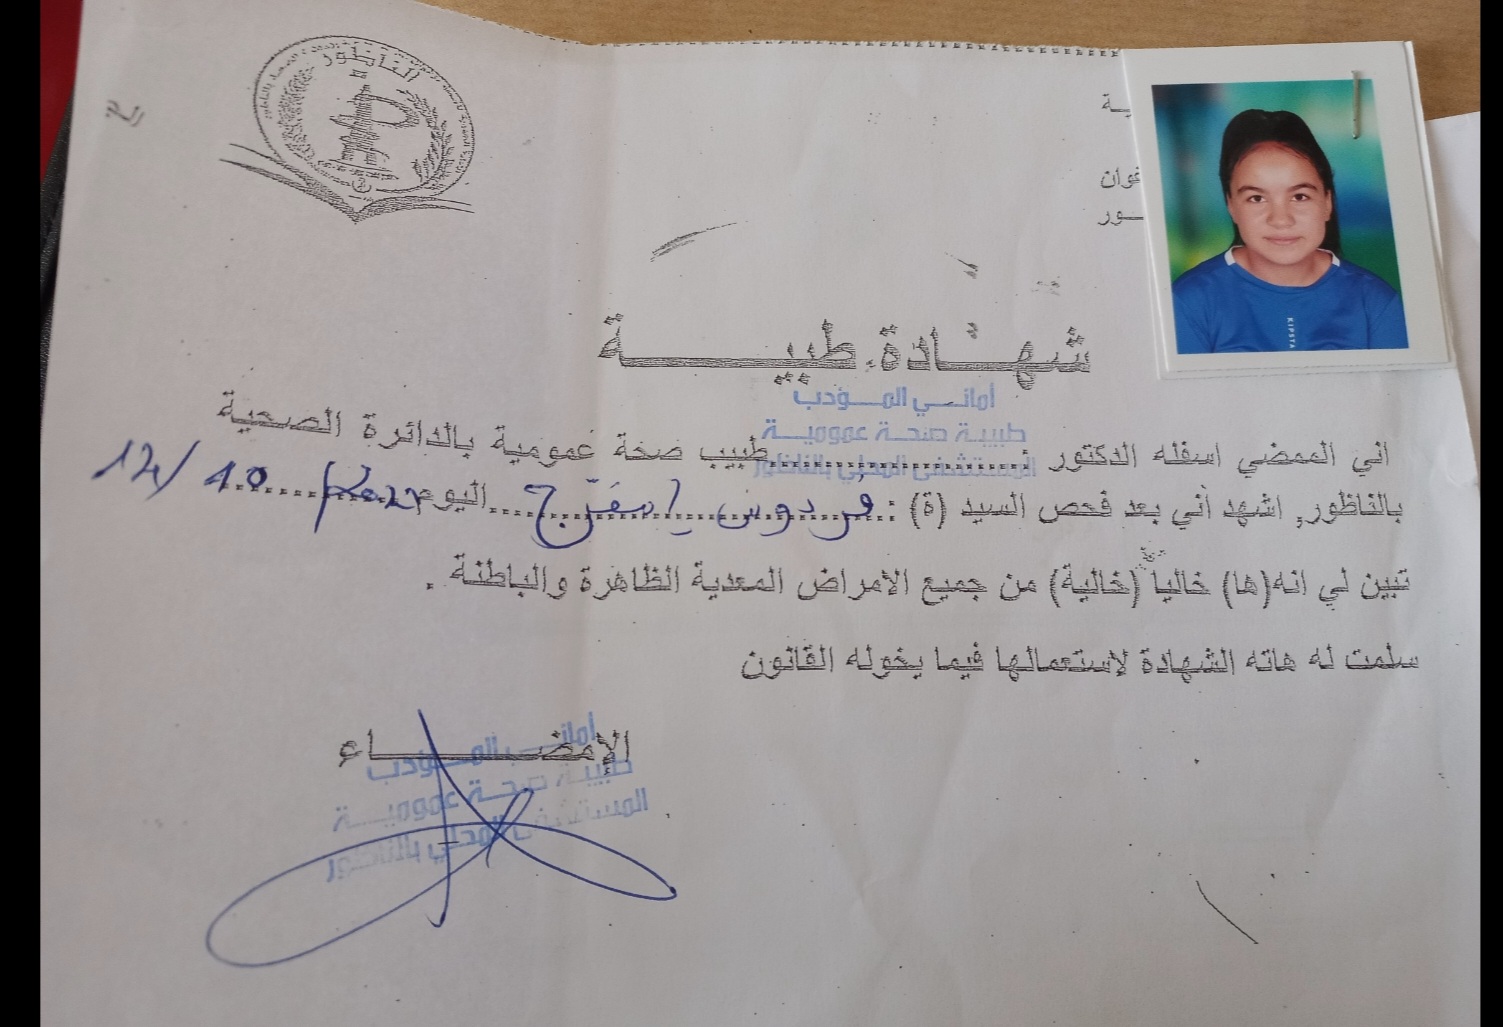 الناظور
ـية
غوان
ـور
KIPSTA
شهـــادة طبيـــــــة
أماني المـؤدب
طبيبة صحة عمومية
المستشفى المحلي بالناظور
اني الممضي اسفله الدكتور :..................طبيب صحة عمومية بالدائرة الصحية
بالناظور, اشهد أني بعد فحص السيد (ة) : فردوس ... اليوم 12/10/2022
تبين لي انه(ها) خالياً (خالية) من جميع الامراض المعدية الظاهرة والباطنة .
سلمت له هاته الشهادة لإستعمالها فيما يخوله القانون
الإمضـــــاء
أماني المـؤدب
طبيبة صحة عمومية
المستشفى المحلي بالناظور